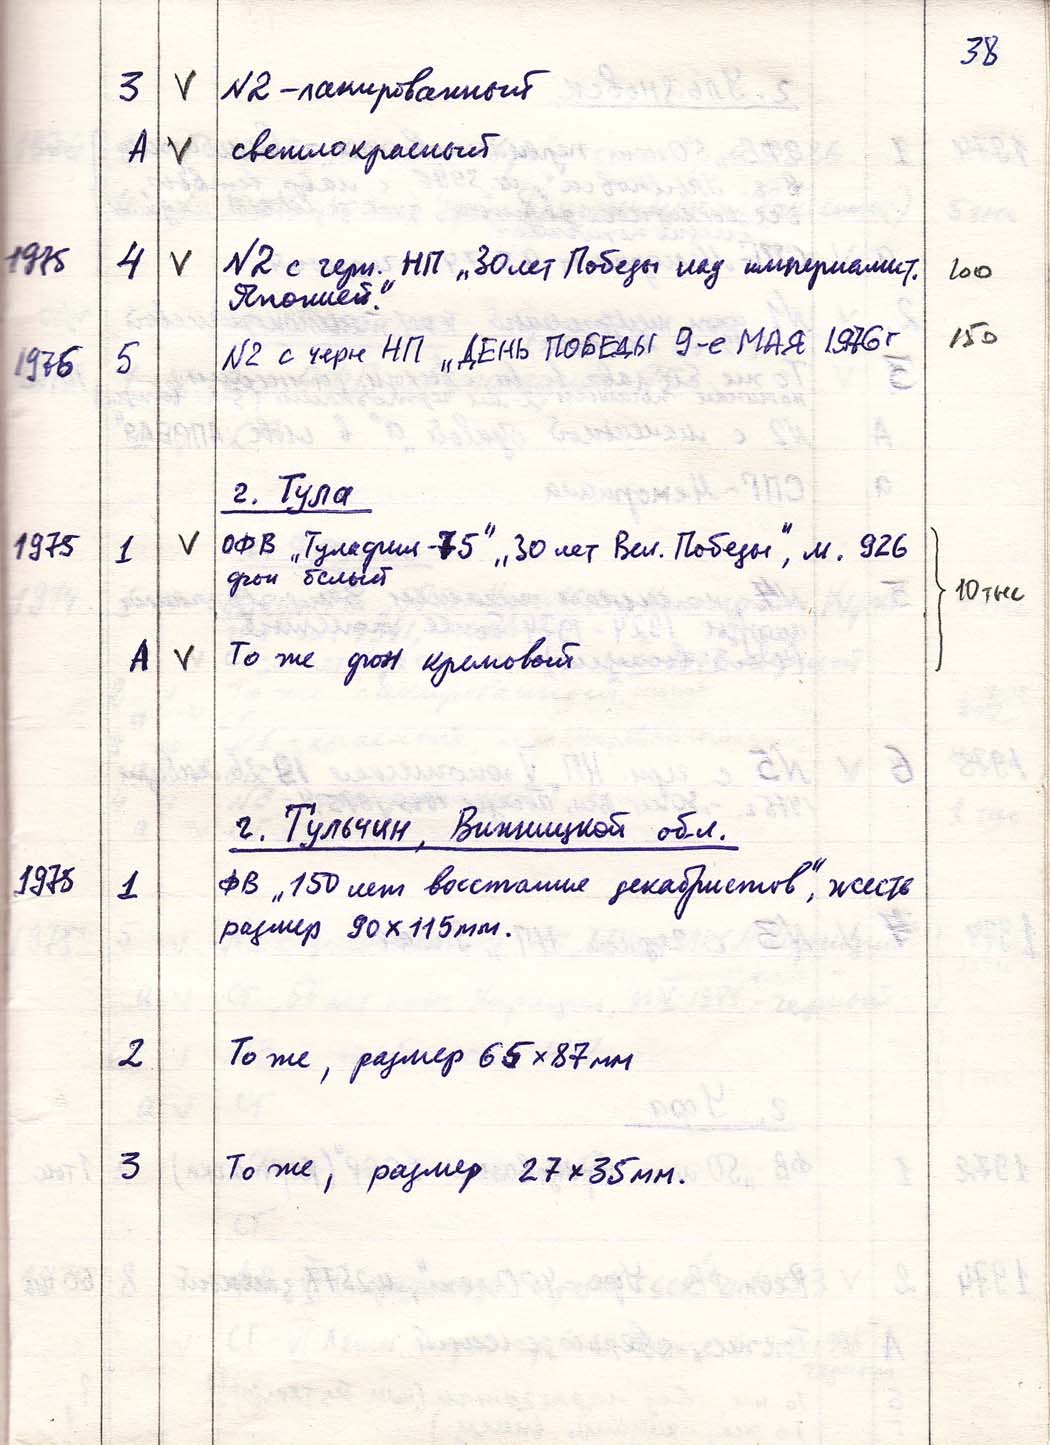 38
3 V N2 – лакированный
А V светлокрасный
1975 4 V N2 с черн. НП „30 лет Победы над империалист. 100
Японией."
1976 5 N2 с черн НП „ДЕНЬ ПОБЕДЫ 9-е МАЯ 1976 г 150
г. Тула
1975 1 V ОФВ „Тулафил-75" „30 лет Вел. Победы", м. 926
фон белый
10 тыс
А V То же фон кремовый
г. Тульчин, Винницкой обл.
1975 1 ФВ „150 лет восстания декабристов", жесть
размер 90х115мм.
2 То же, размер 65х87мм
3 То же, размер 27х35мм.